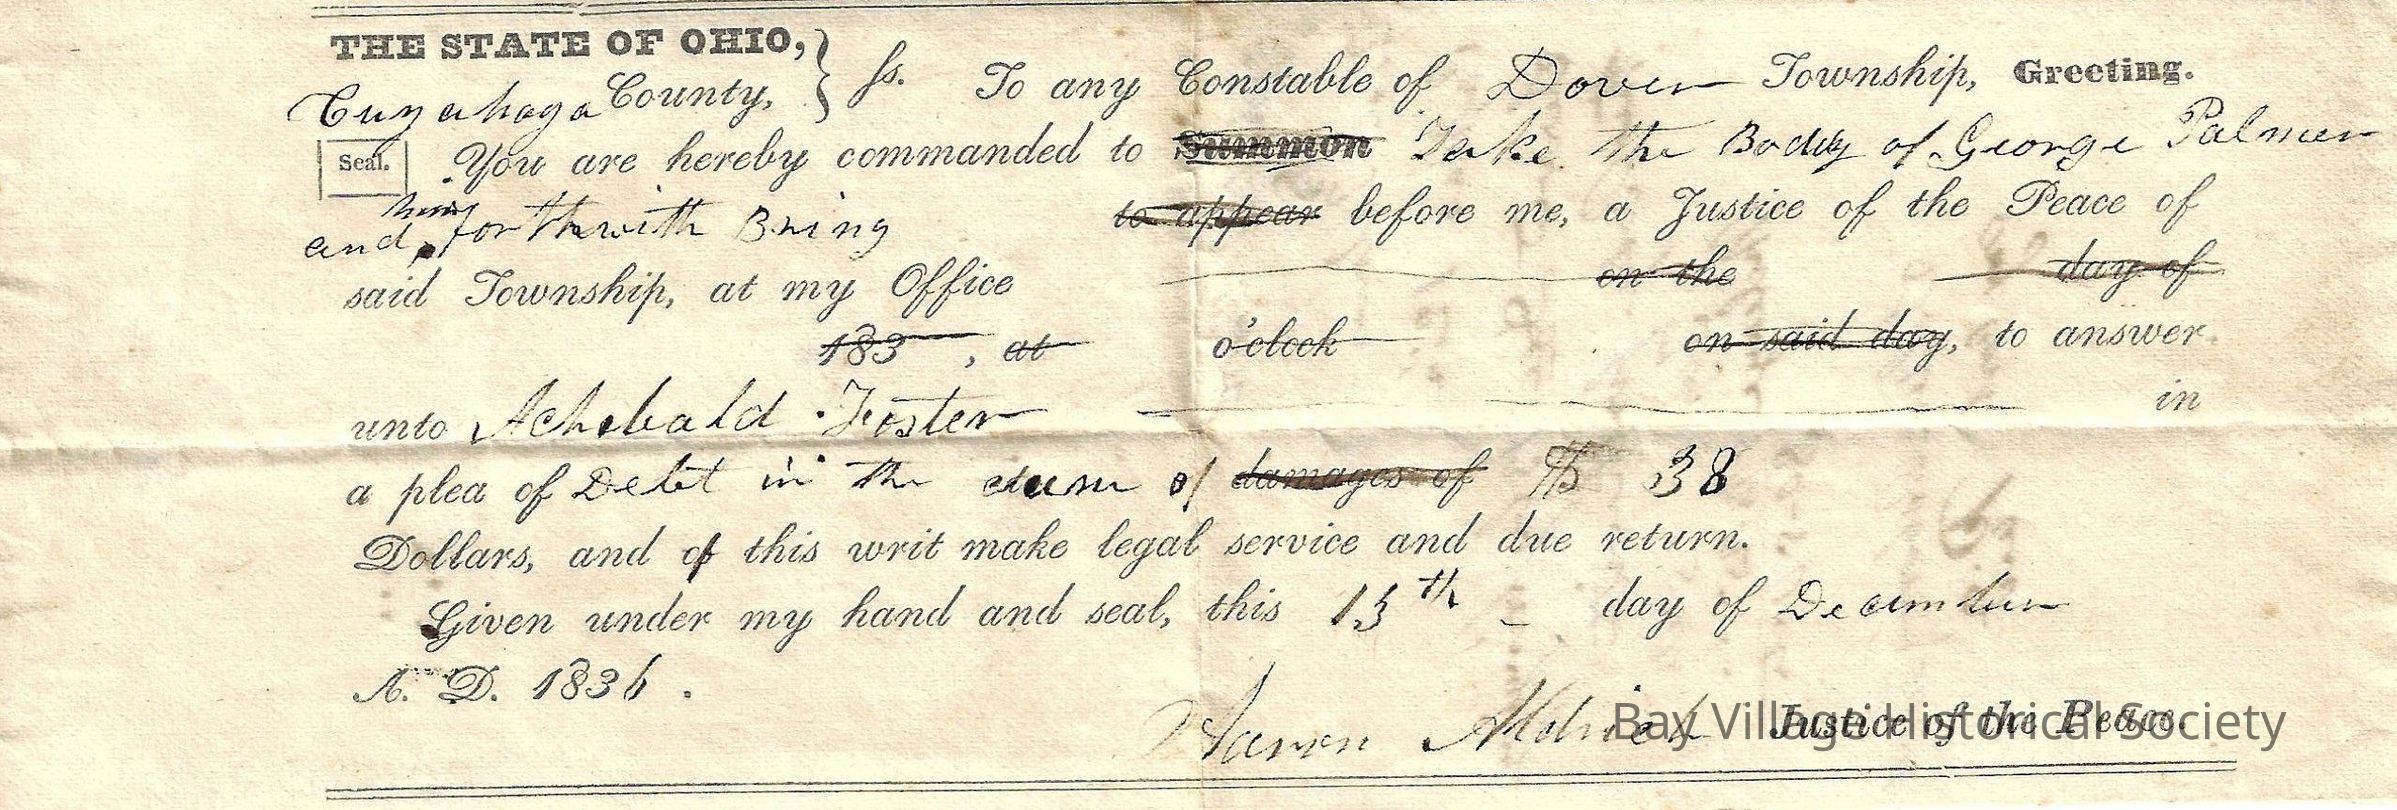 THE STATE OF OHIO,
Cuyahoga County, } ss. To any Constable of Dover Township, Greeting.
Seal. You are hereby commanded to Summon Take the Body of George Palmer
him
and forthwith Bring to appear before me, a Justice of the Peace of
said Township, at my Office on the day of
183 , at o'clock on said day, to answer
unto Achebald Foster in
a plea of Debt in the sum of damages of $ 38
Dollars, and of this writ make legal service and due return.
Given under my hand and seal, this 13th day of December
A. D. 1836.
Aldrich Justice of the Peace.
Bay Village Historical Society